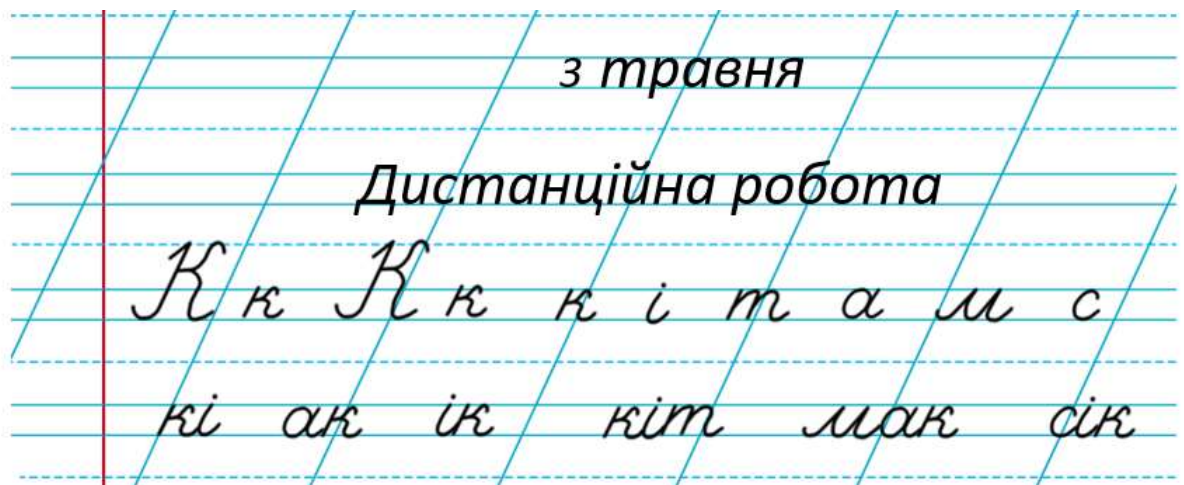 з травня
Дистанційна робота
К к К к к і т а м с
кі ак ік кіт мак сік